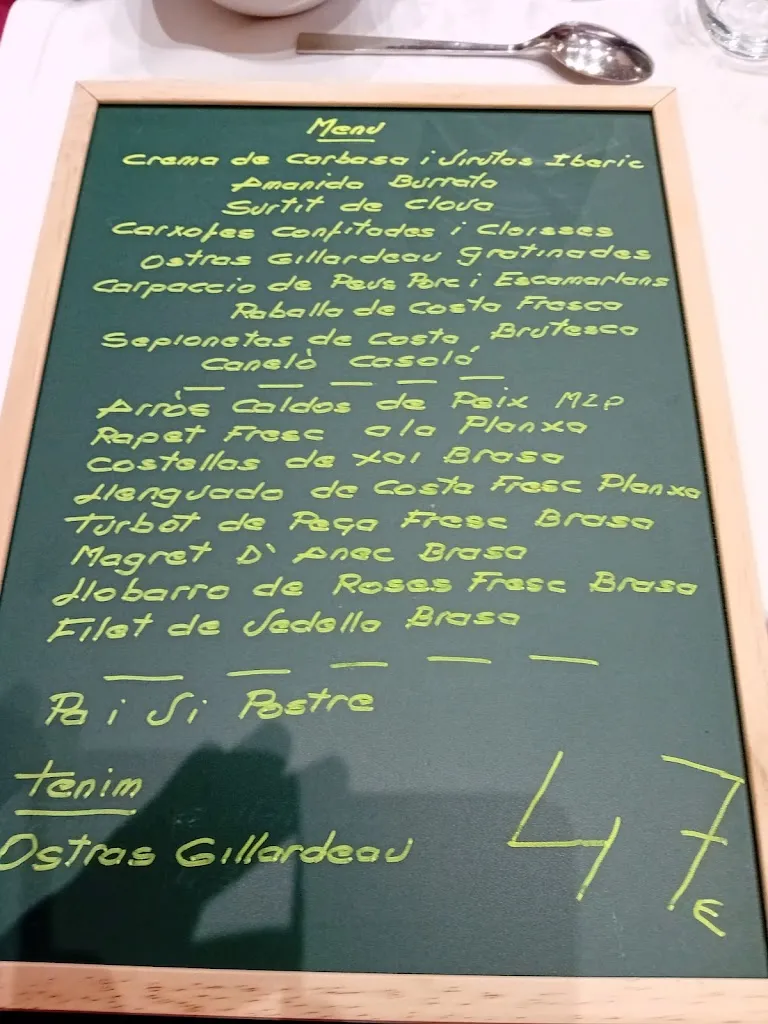 Menu
Crema de Carbasa i Virutas Iberic
Amanida Burrata
Surtit de Clova
Carxofes Confitades i Cloisses
Ostras Gillardeau gratinades
Carpaccio de Peus Porc i Escamarlans
Raballo de Costa Fresco
Sepionetas de Costa Brutesca
Caneló Casolá
Arròs Caldos de Peix M2P
Rapet Fresc a la Planxa
Costellas de Xai Brasa
Llenguado de Costa Fresc Planxa
Turbot de Peça Fresc Brasa
Magret D' Anec Brasa
Llobarro de Roses Fresc Brasa
Filet de Vedella Brasa
Pa i Vi Postre
Tenim
Ostras Gillardeau
47€